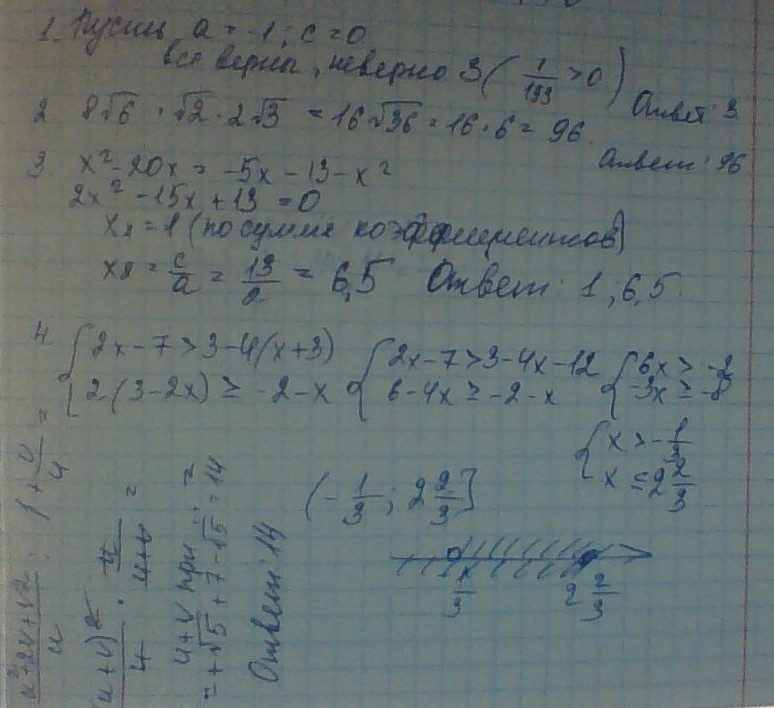 1. Пусть a = -1; c = 0
все верны, неверно 3 ( 1/193 > 0 )
Ответ: 3
2 8√6 · √2 · 2√3 = 16√36 = 16 · 6 = 96.
Ответ: 96
3 x² - 20x = -5x - 13 - x²
2x² - 15x + 13 = 0
x₁ = 1 (по сумме коэффициентов)
x₂ = c/a = 13/2 = 6,5 Ответ: 1, 6,5.
4. { 2x - 7 > 3 - 4(x + 3) { 2x - 7 > 3 - 4x - 12 { 6x > -2
{ 2(3 - 2x) ≥ -2 - x { 6 - 4x ≥ -2 - x { -3x ≥ -8
{ x > -1/3
x ≤ 2 2/3
(-1/3; 2 2/3]
1/3 2 2/3
u + v при =
= +√5 + 7 - √5 = 14
Ответ: 14